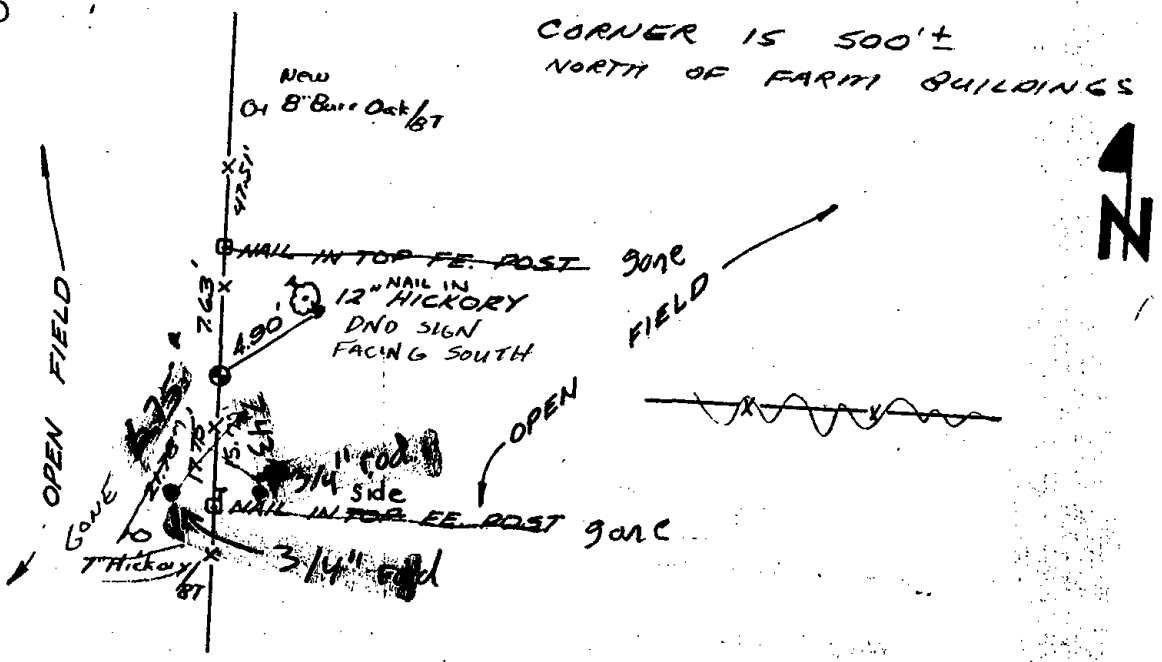 CORNER IS 500'±
NORTH OF FARM BUILDINGS
New
8" Burr Oak/BT
47.51'
NAIL IN TOP FE. POST gone
7.63'
NAIL IN
12" HICKORY
DND SIGN
FACING SOUTH
4.90'
N
OPEN FIELD
OPEN FIELD
3/4" rod
side
NAIL IN TOP FE. POST gone
GONE
7" Hickory/BT
3/4" rod
17.70'